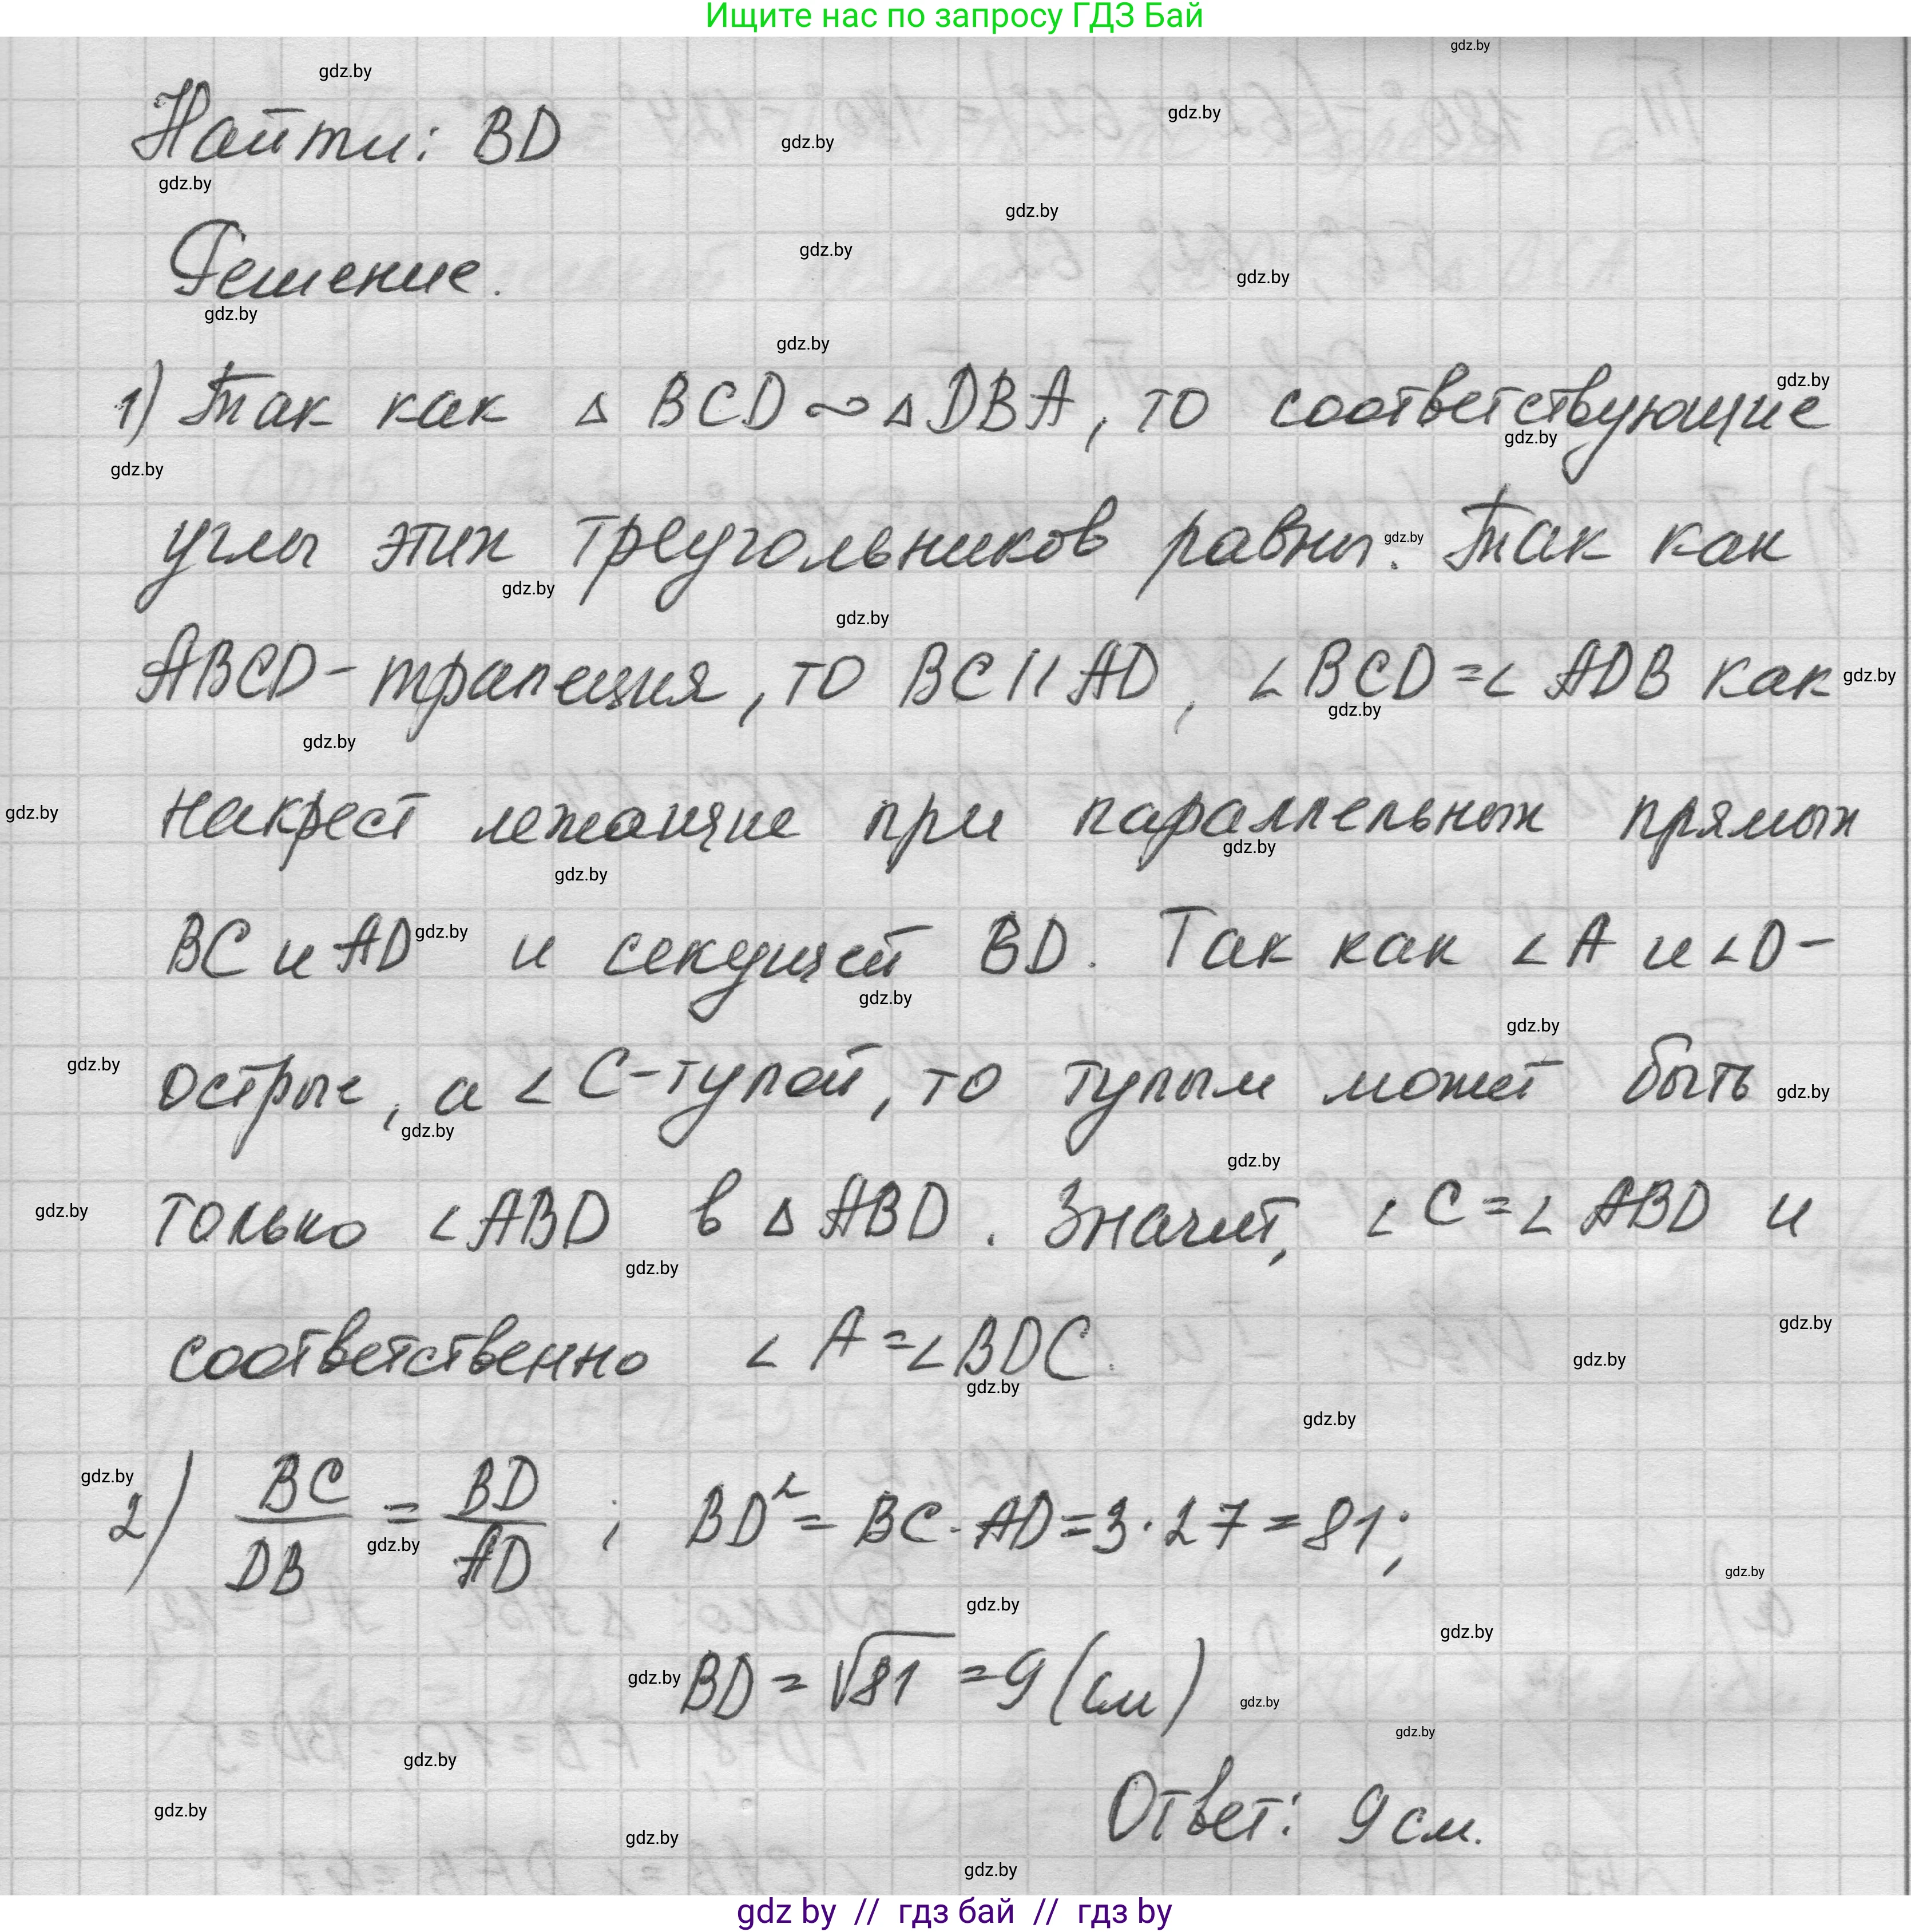 Ищите нас по запросу ГДЗ Бай
gdz.by
Найти: BD
Решение.
1) Так как △ BCD ∾ △ DBA, то соответствующие
углы этих треугольников равны. Так как
ABCD - трапеция, то BC || AD, ∠ BCD = ∠ ADB как
накрест лежащие при параллельных прямых
BC и AD и секущей BD. Так как ∠ A и ∠ D -
острые, а ∠ C - тупой, то тупым может быть
только ∠ ABD в △ ABD. Значит, ∠ C = ∠ ABD и
соответственно ∠ A = ∠ BDC.
2) BC/DB = BD/AD ; BD² = BC · AD = 3 · 27 = 81;
BD = √81 = 9 (см)
Ответ: 9 см.
gdz by // гдз бай // гдз by